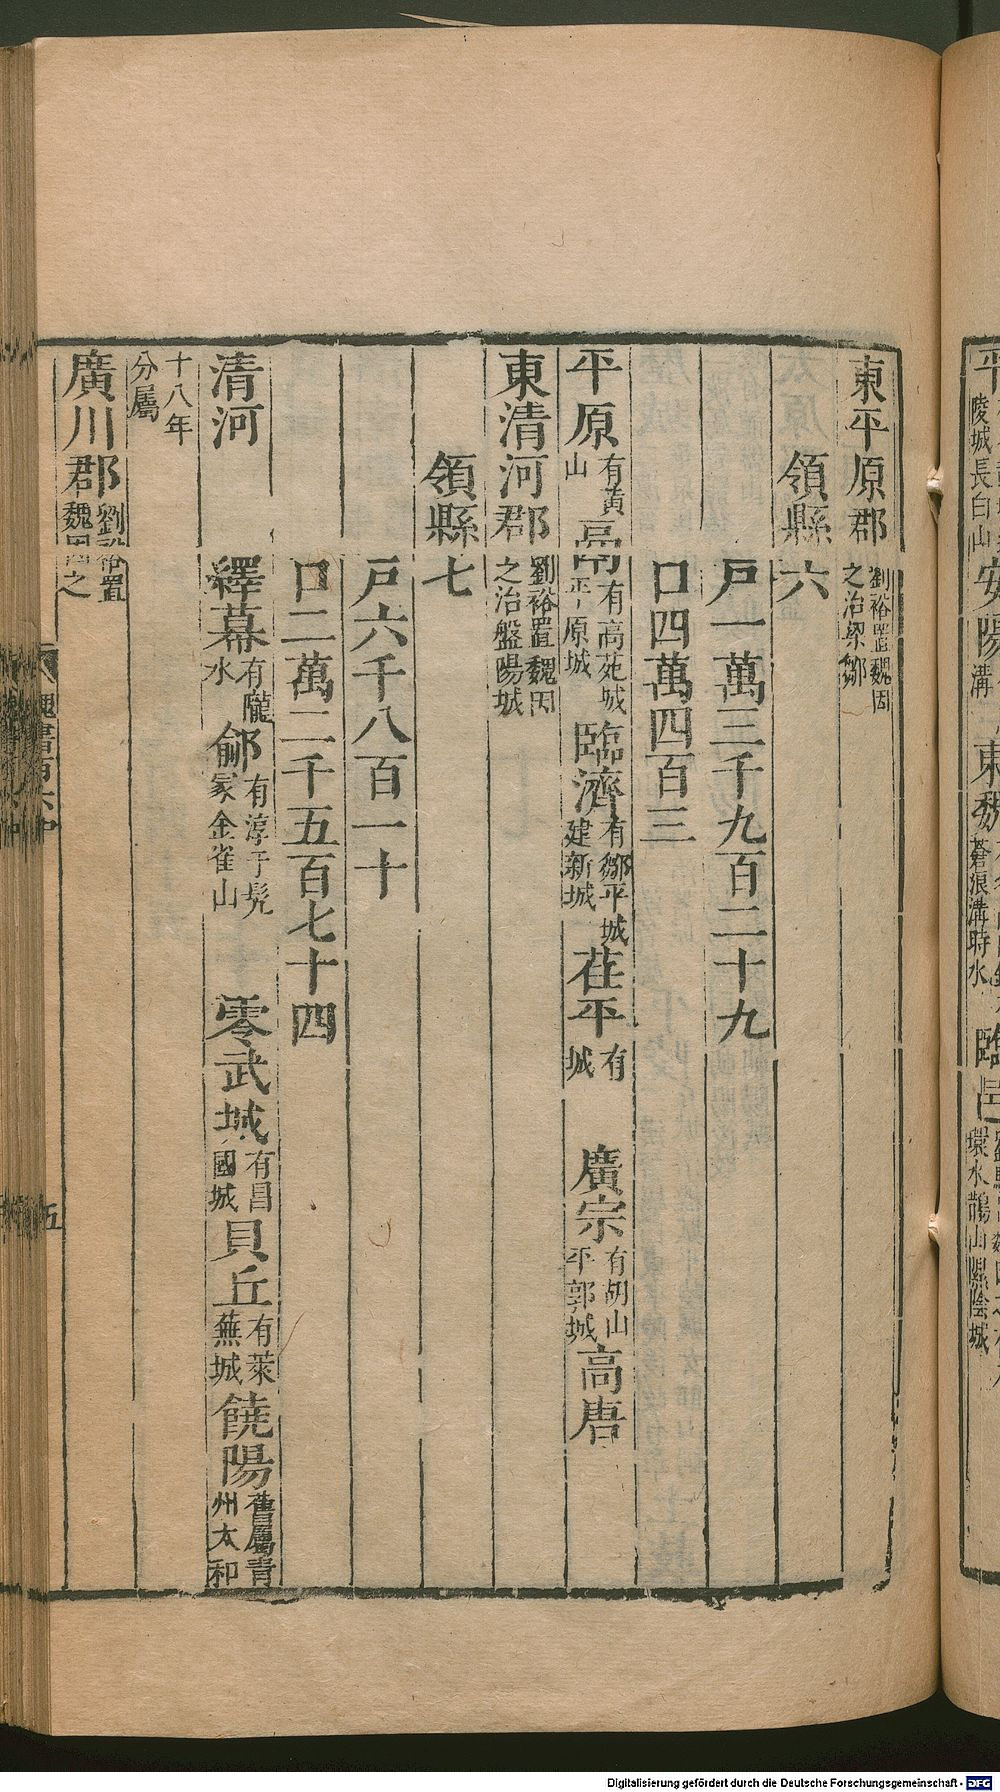 東平原郡 劉裕置魏因之治梁鄒
領縣六
戸一萬三千九百二十九
口四萬四百三
平原 有黃山 鬲 有高苑城平原城 臨濟 有鄒平城建新城 茌平 有城 廣宗 有胡山平郭城 高唐
東清河郡 劉裕置魏因之治盤陽城
領縣七
戸六千八百一十
口二萬二千五百七十四
清河 繹幕 有隴水 鄃 有淳于髡冢金雀山 零 武城 有昌國城 貝丘 有萊蕪城 饒陽 舊屬青州太和
十八年分屬
廣川郡 劉裕置魏因之
魏書百六中
五
陵城長白山
安陽
溝
東魏
蒼浪溝時水
臨邑
環水鵲山
陰城
Digitalisierung gefördert durch die Deutsche Forschungsgemeinschaft - DFG